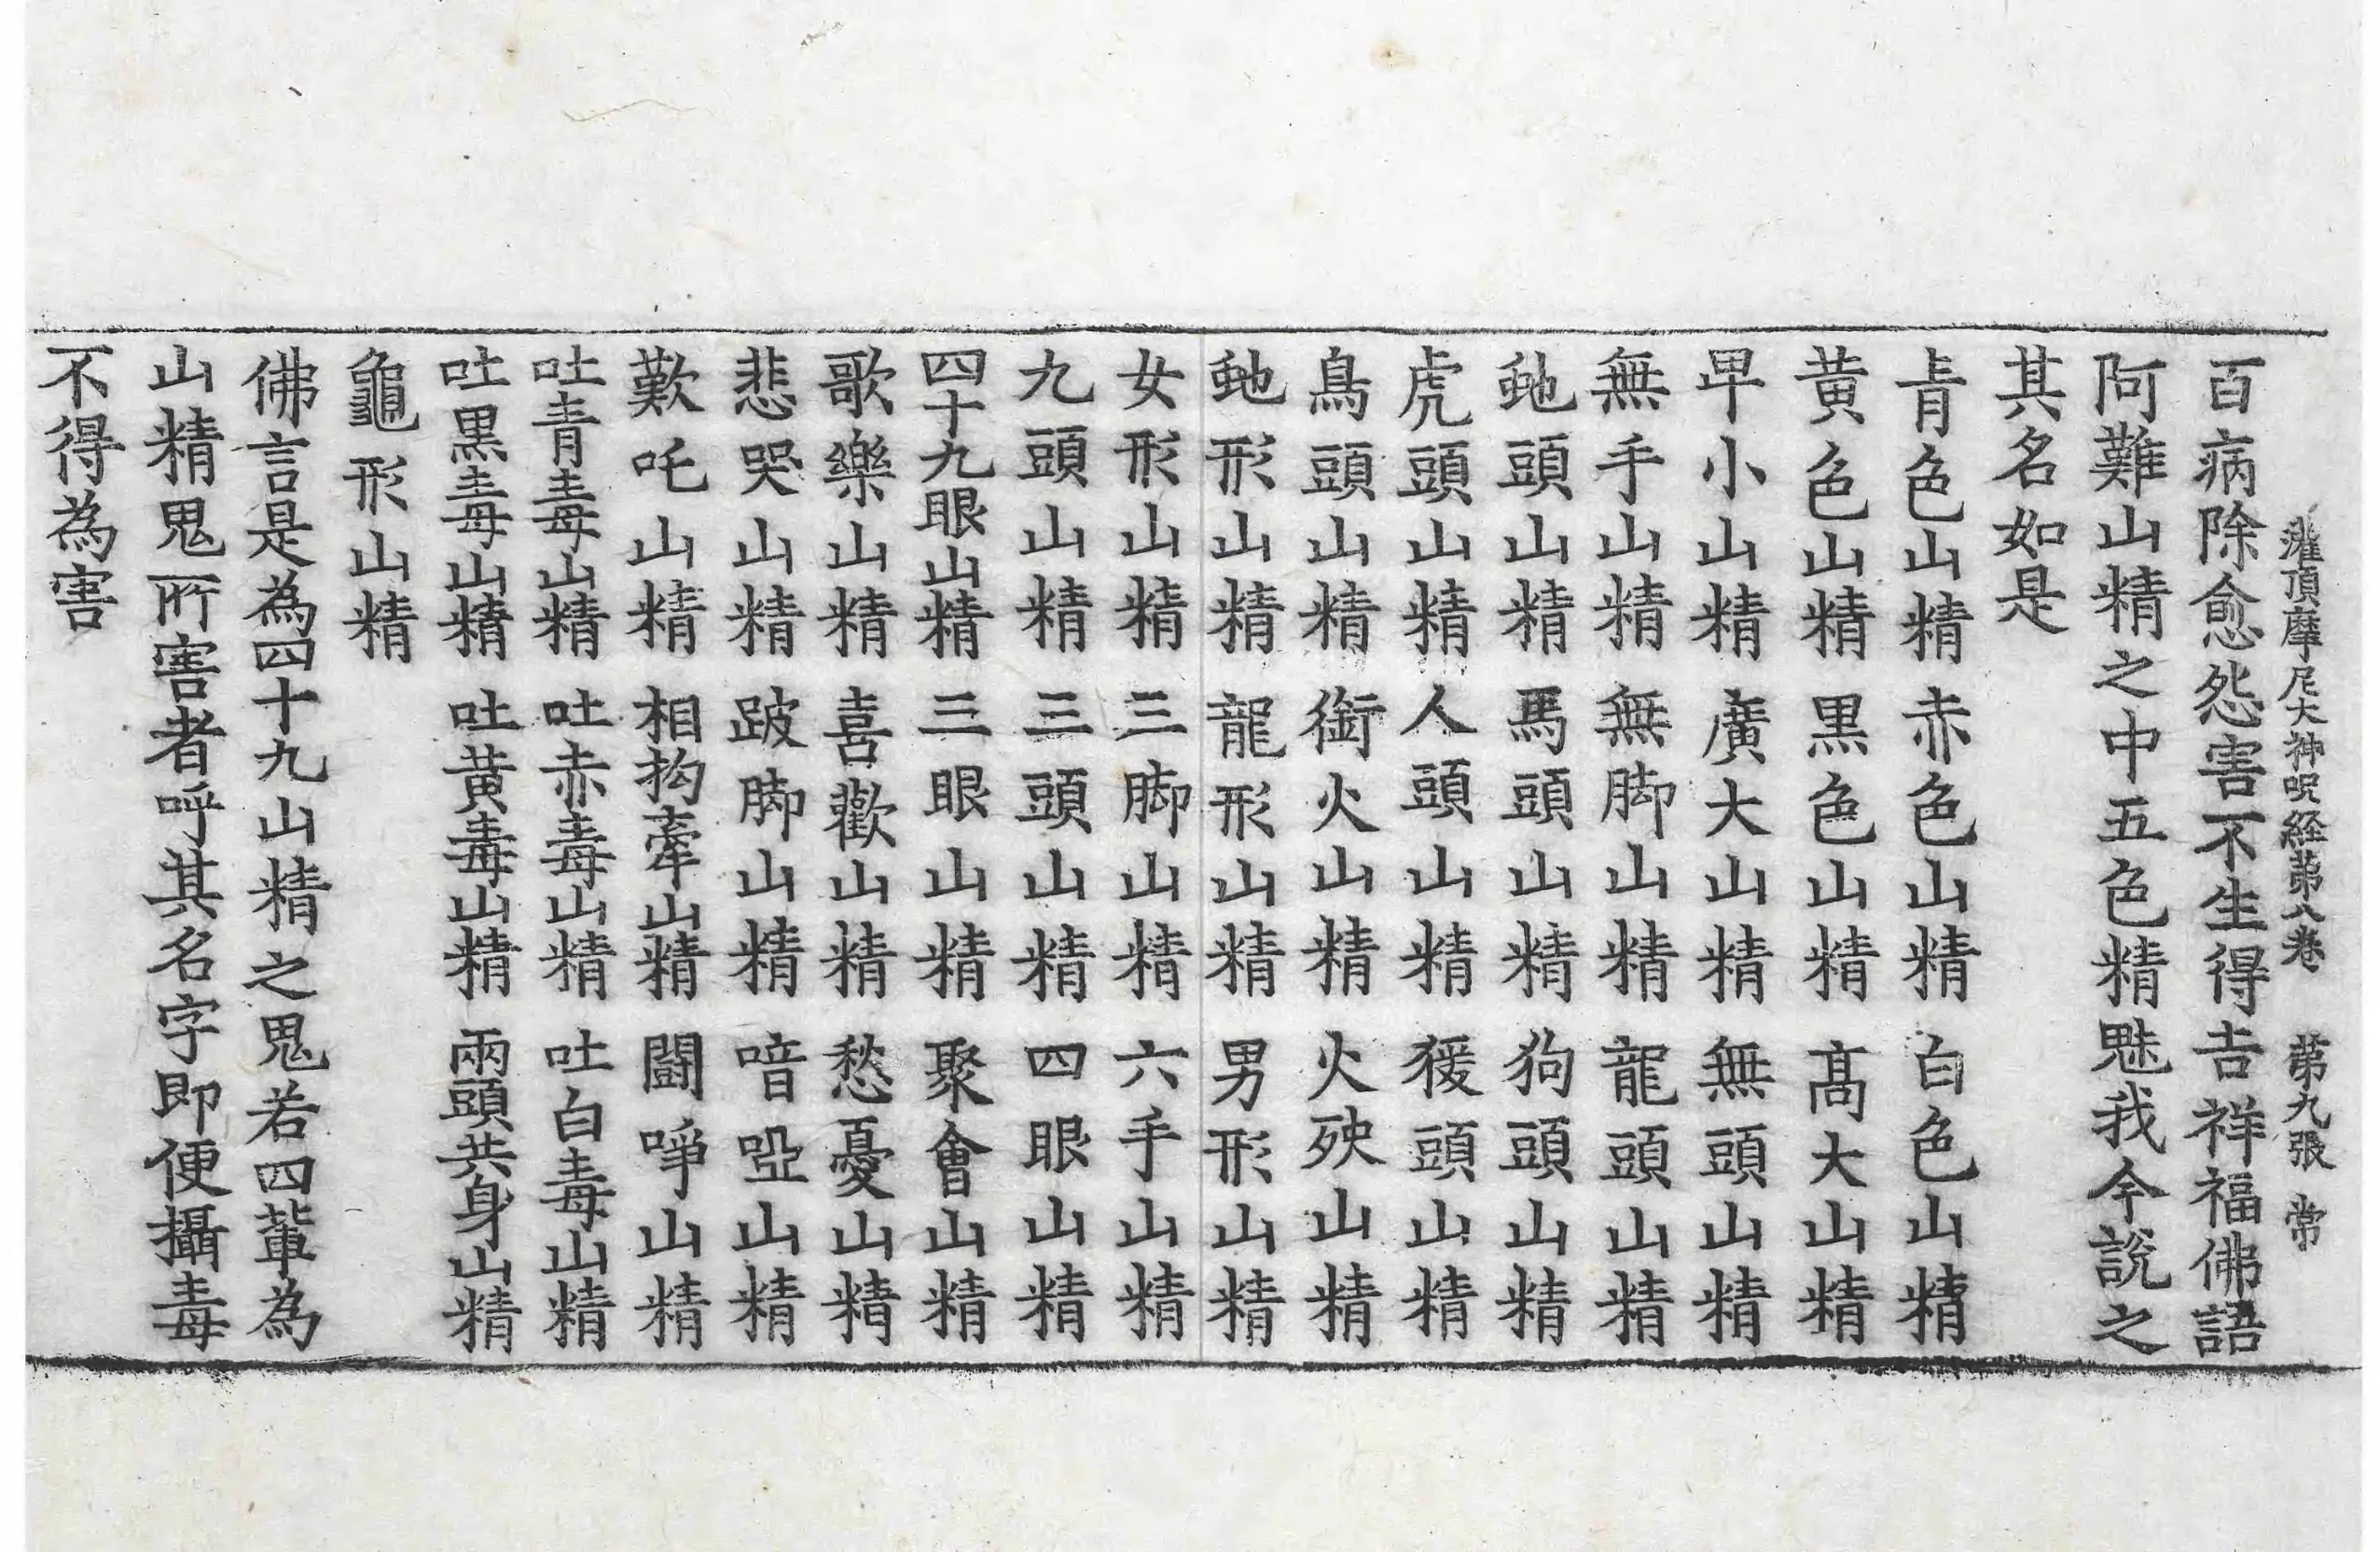 灌頂摩尼大神呪経苐八卷 苐九張 常
百病除愈怨害不生得吉祥福佛語
阿難山精之中五色精魅我今說之
其名如是
青色山精 赤色山精 白色山精
黄色山精 黒色山精 髙大山精
卑小山精 廣大山精 無頭山精
無手山精 無脚山精 龍頭山精
虵頭山精 馬頭山精 狗頭山精
虎頭山精 人頭山精 猨頭山精
鳥頭山精 銜火山精 火殃山精
虵形山精 龍形山精 男形山精
女形山精 三脚山精 六手山精
九頭山精 三頭山精 四眼山精
四十九眼山精 三眼山精 聚會山精
歌樂山精 喜歡山精 愁憂山精
悲哭山精 跛脚山精 喑啞山精
歎吒山精 相抅牽山精 闘諍山精
吐青毒山精 吐赤毒山精 吐白毒山精
吐黒毒山精 吐黄毒山精 兩頭共身山精
龜形山精
佛言是為四十九山精之鬼若四軰為
山精鬼所害者呼其名字即便攝毒
不得為害